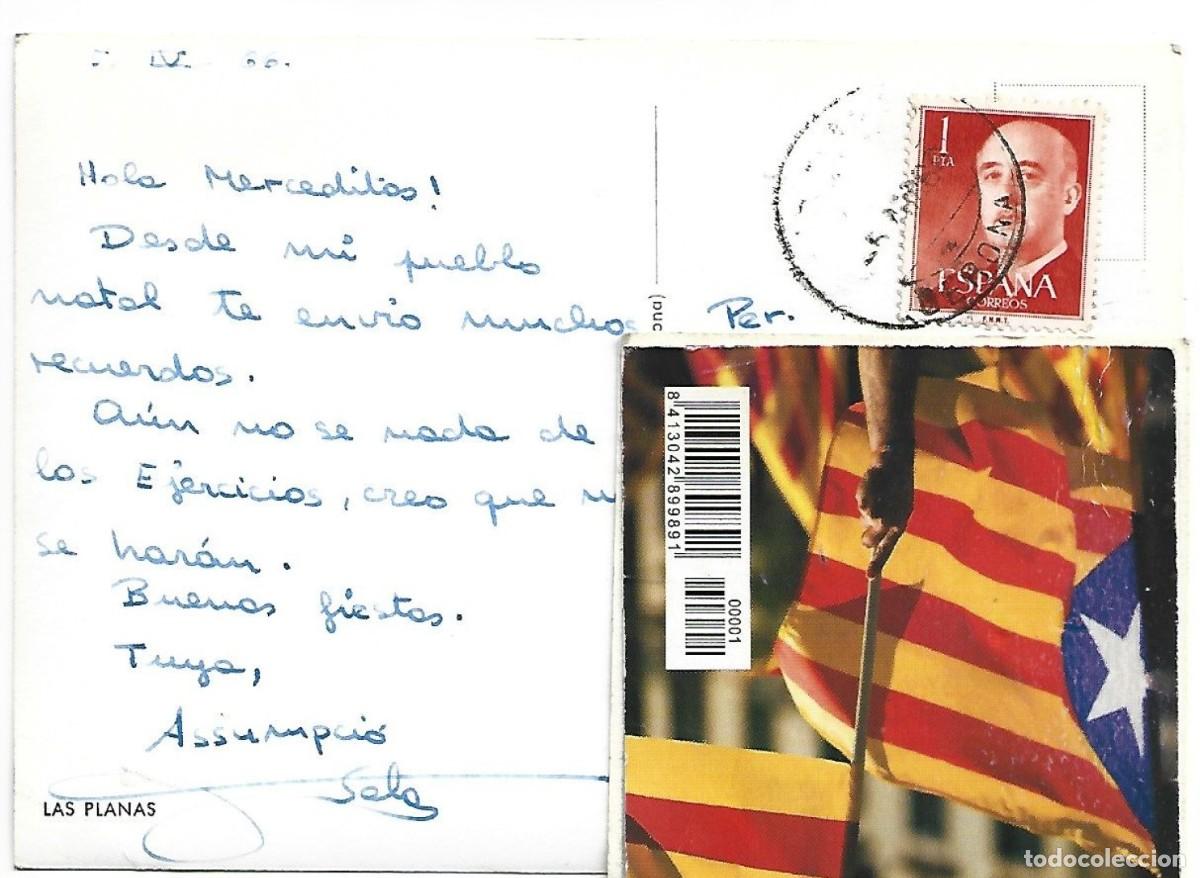 IV 66.
Hola Merceditas!
Desde mi pueblo
natal te envio muchos
recuerdos.
Aún no se nada de
los Ejercicios, creo que
se harán.
Buenas fiestas.
Tuya,
Assumpció
Sala
LAS PLANAS
1
PTA
ESPAÑA
CORREOS
F.N.M.T.
Per.
8 413042 899891
00001
todocoleccion